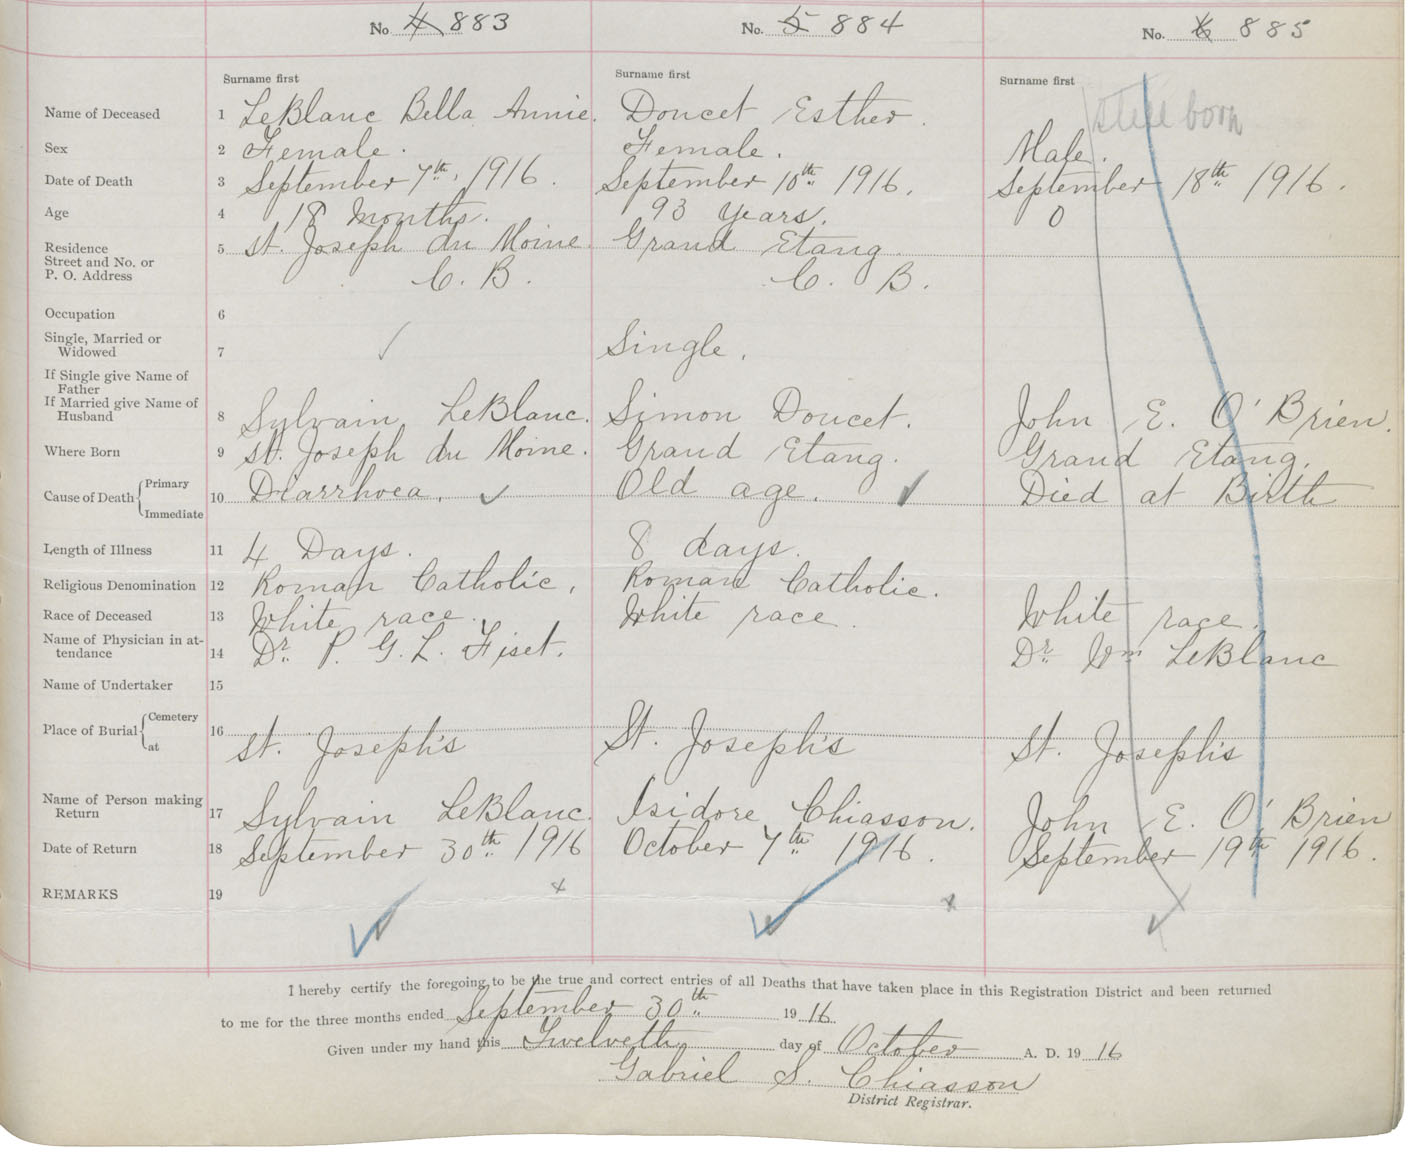 No. 4 883 No. 5 884 No. 6 885
Surname first Surname first Surname first
still born
Name of Deceased 1 LeBlanc Bella Annie. Doucet Esther.
Sex 2 Female. Female. Male.
Date of Death 3 September 7th, 1916. September 10th 1916. September 18th 1916.
Age 4 18 Months. 93 Years. 0
Residence
Street and No. or
P. O. Address 5 St. Joseph du Moine. Grand Etang.
C. B. C. B.
Occupation 6
Single, Married or
Widowed 7 Single.
If Single give Name of
Father
If Married give Name of
Husband 8 Sylvain LeBlanc. Simon Doucet. John E. O'Brien.
Where Born 9 St. Joseph du Moine. Grand Etang. Grand Etang.
Cause of Death { Primary
Immediate 10 Diarrhoea. Old age. Died at Birth
Length of Illness 11 4 Days. 8 days.
Religious Denomination 12 Roman Catholic, Roman Catholic.
Race of Deceased 13 White race. White race. White race.
Name of Physician in at-
tendance 14 Dr. P. G. L. Fiset. Dr. Wm LeBlanc
Name of Undertaker 15
Place of Burial { Cemetery
at 16 St. Joseph's St. Joseph's St. Joseph's
Name of Person making
Return 17 Sylvain LeBlanc. Isidore Chiasson. John E. O'Brien
Date of Return 18 September 30th 1916 October 7th 1916. September 19th 1916.
REMARKS 19
I hereby certify the foregoing to be the true and correct entries of all Deaths that have taken place in this Registration District and been returned
to me for the three months ended September 30th 1916.
Given under my hand this Twelveth day of October A. D. 1916
Gabriel S. Chiasson
District Registrar.